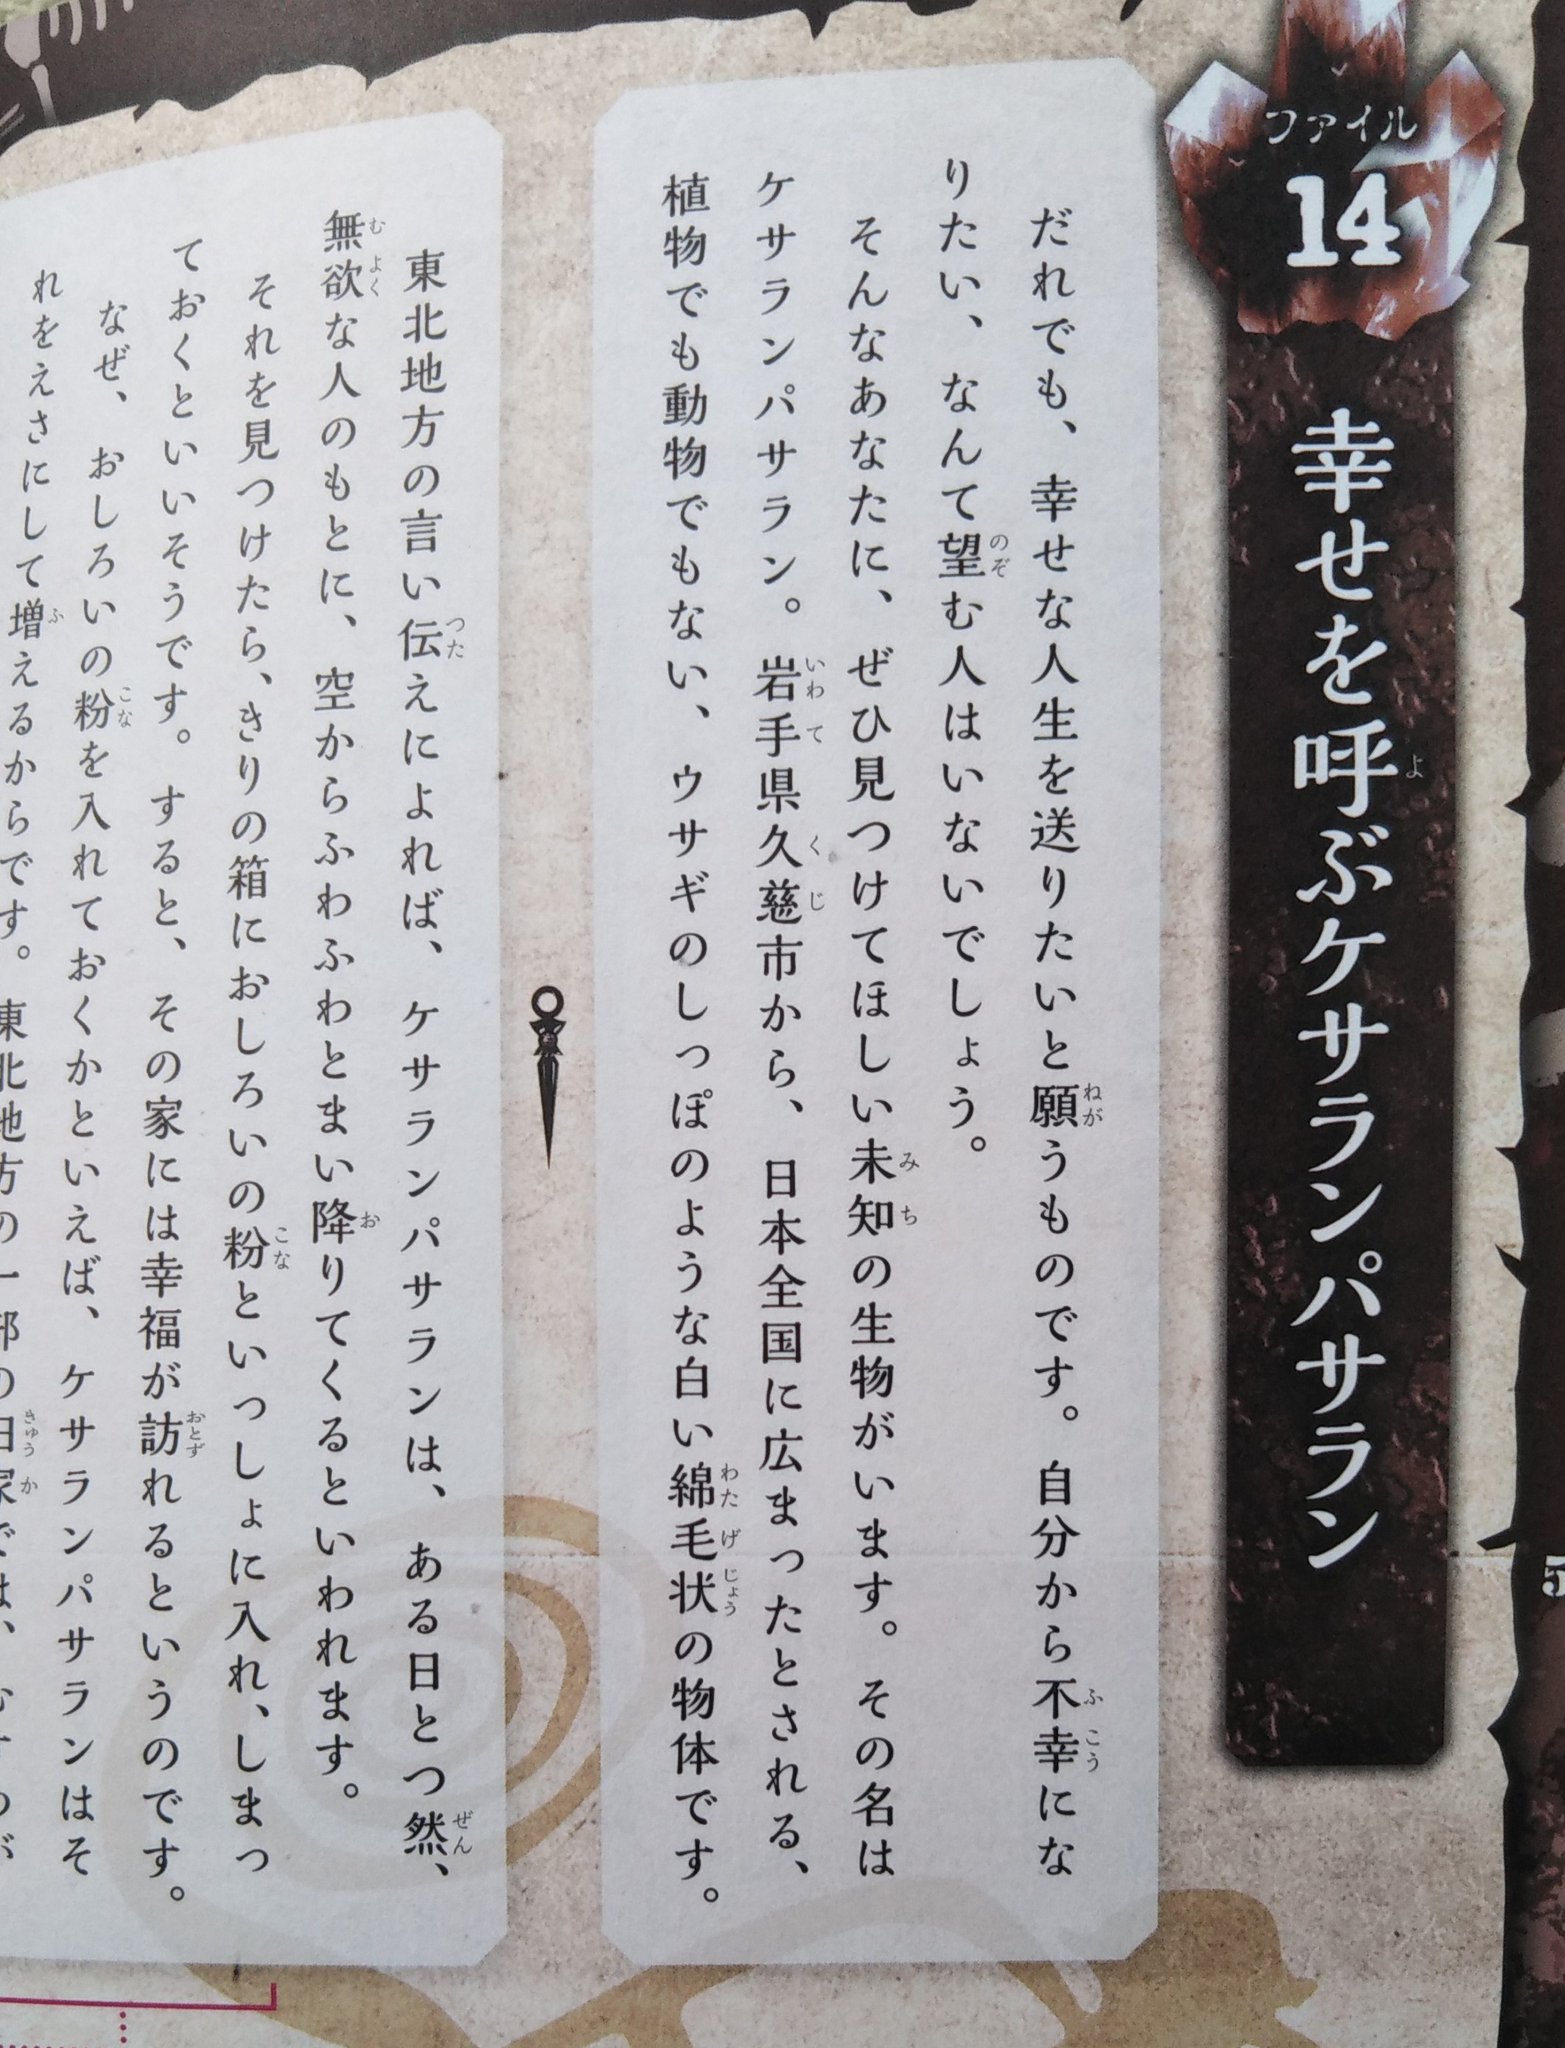 ファイル
14
幸せを呼ぶケサランパサラン
だれでも、幸せな人生を送りたいと願うものです。自分から不幸にな
りたい、なんて望む人はいないでしょう。
そんなあなたに、ぜひ見つけてほしい未知の生物がいます。その名は
ケサランパサラン。岩手県久慈市から、日本全国に広まったとされる、
植物でも動物でもない、ウサギのしっぽのような白い綿毛状の物体です。
東北地方の言い伝えによれば、ケサランパサランは、ある日とつ然、
無欲な人のもとに、空からふわふわとまい降りてくるといわれます。
それを見つけたら、きりの箱におしろいの粉といっしょに入れ、しまっ
ておくといいそうです。すると、その家には幸福が訪れるというのです。
なぜ、おしろいの粉を入れておくかといえば、ケサランパサランはそ
れをえさにして増えるからです。東北地方の一部の旧家では、